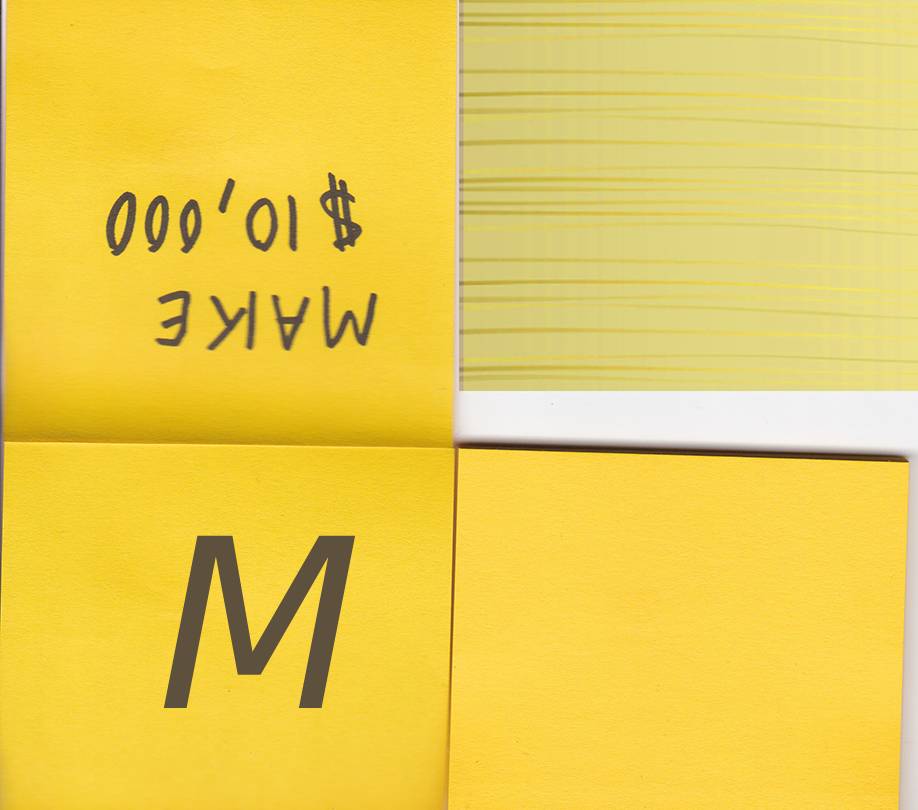 MAKE
$10,000
M